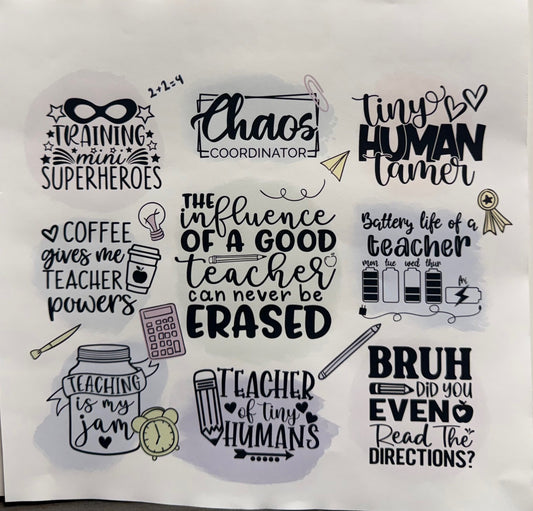 TRAINING
mini
SUPERHEROES
2+2=4
Chaos
COORDINATOR
tiny
HUMAN
tamer
COFFEE
gives me
TEACHER
powers
THE
influence
OF A GOOD
teacher
can never be
ERASED
Battery life of a
teacher
mon tue wed thur
fri
TEACHING
is my
jam
TEACHER
of tiny
HUMANS
BRUH
DID YOU
EVEN
Read The
DIRECTIONS?